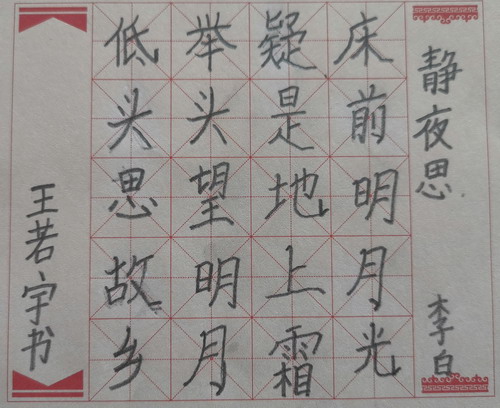 静夜思
李白
床前明月光
疑是地上霜
举头望明月
低头思故乡
王若宇书